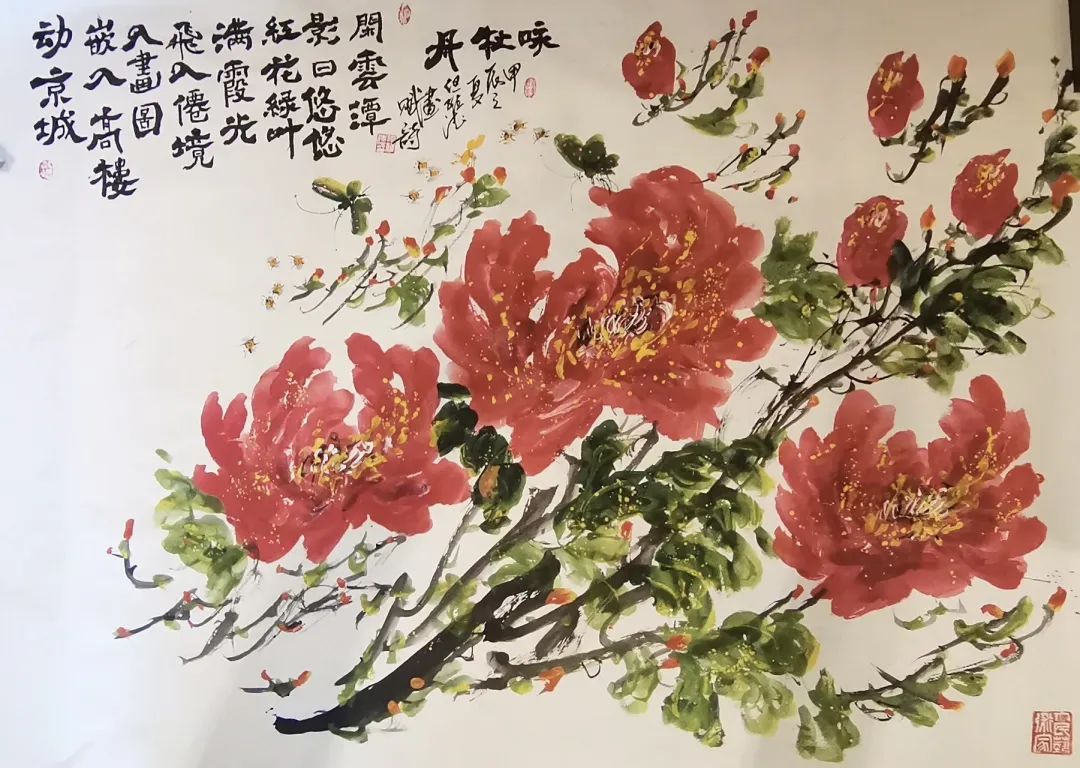 咏牡丹
甲辰之
夏
畫
賦詩
閑雲潭
影日悠悠
紅花緑叶
满霞光
飛入僊境
入畫圖
嵌入高樓
动京城